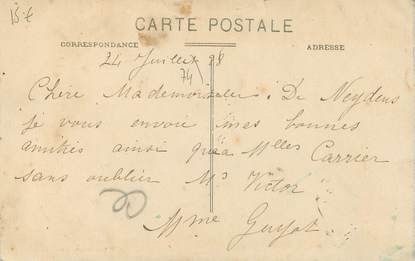 15 €
CARTE POSTALE
CORRESPONDANCE
ADRESSE
24 Juillet 28
74
Chère Mademoiselle. De Neydens
je vous envoie mes bonnes
amitiés ainsi qu'a Melles Carrier
sans oublier Mr Victor
Mme Guyot.